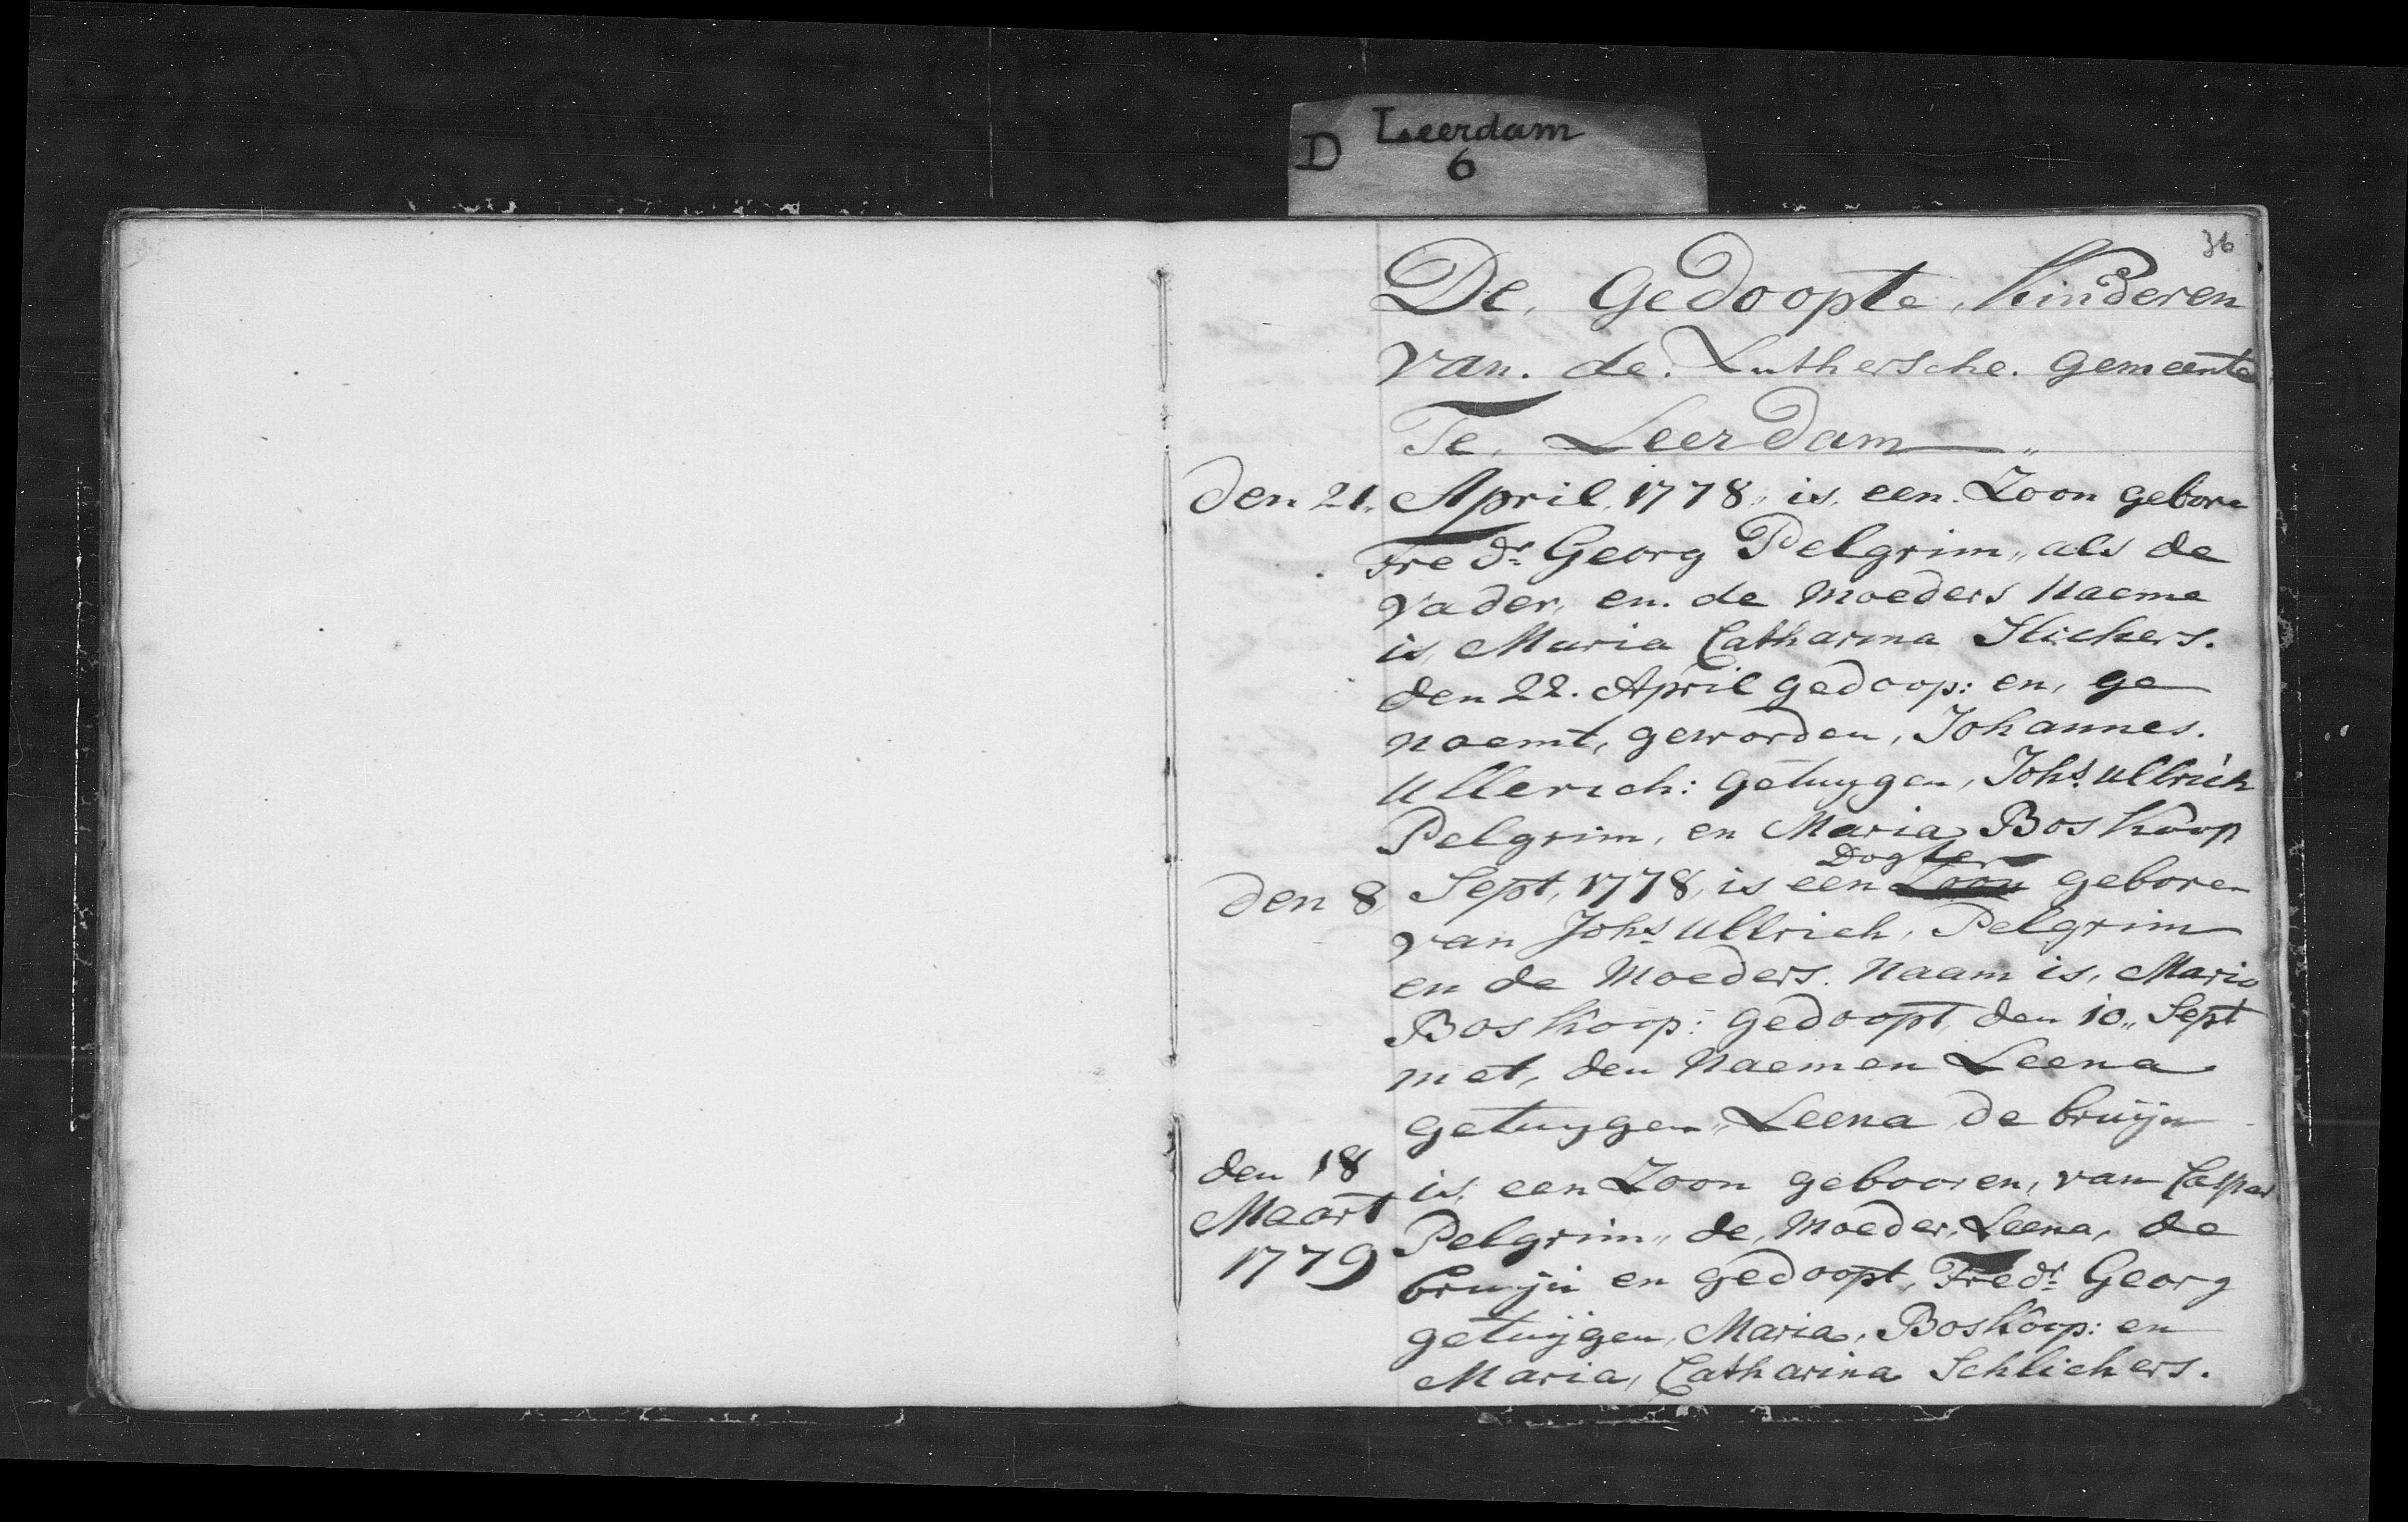 D Leerdam
6
36
De, Gedoopte, Kinderen
van. de. Luthersche. gemeente
Te, Leerdam — „
den 21„ April, 1778„ is, een. Zoon gebore
Fredr. Georg Pelgrim„ als de
vader, en. de moeders Naeme
is, Maria Catharina Slichers.
den 22. April gedoop: en, ge
noemt, geworden, Johannes.
Ullerich: getuygen, Johs. Ullrich
Pelgrim, en Maria Boskoop
Dogter
den 8, Sept, 1778, is een Zoon geboren
van Johs Ullrich, Pelgrim
en de Moeders. Naam is, Maria
Boskoop: gedoopt, den 10„ Sept
met, den Naemen Leena
getuygen„ Leena de bruijn
den 18 is, een Zoon gebooren, van Caspar
Maart Pelgrim„ de, Moeder, Leena, de
1779 bruijn en gedoopt, Fredr. Georg
getuijgen, Maria, Boskoop: en
Maria, Catharina Schlichers.